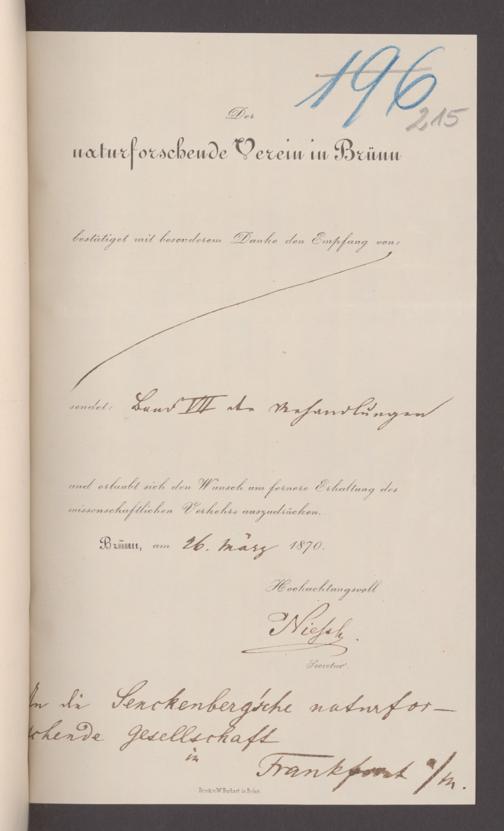 196
215
Der
naturforschende Verein in Brünn
bestätiget mit besonderem Danke den Empfang von:
sendet: Band VII der Verhandlungen
und erlaubt sich den Wunsch um fernere Erhaltung des
wissenschaftlichen Verkehrs auszudrücken.
Brünn, am 26. März 1870.
Hochachtungsvoll
Niessl.
Secretär.
An die Senckenberg'sche naturfor-
schende Gesellschaft
in
Frankfurt a/m.
Druck v. W. Burkart in Brünn.